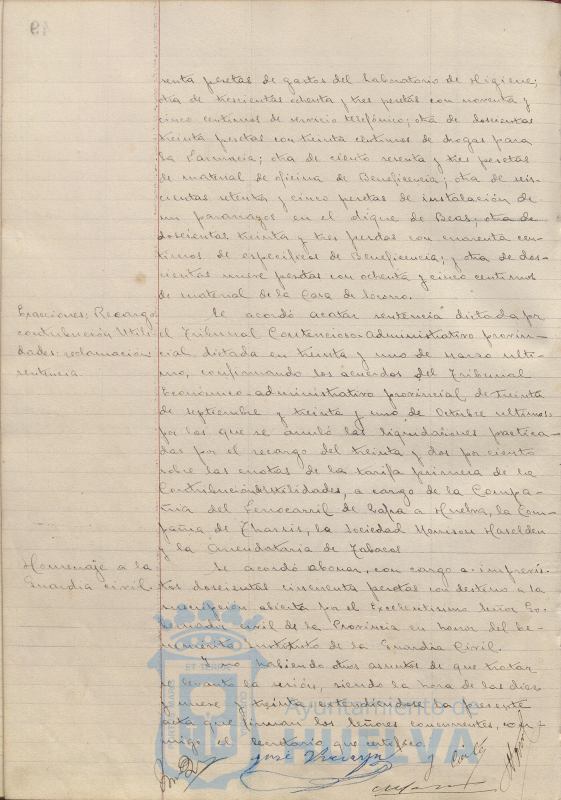 49
renta pesetas de gastos del Laboratorio de Higiene;
otra de trescientas ochenta y tres pesetas con noventa y
cinco centimos de servicio telefónico; otra de doscientas
treinta pesetas con treinta centimos de drogas para
la Farmacia; otra de ciento sesenta y tres pesetas
de material de oficina de Beneficencia; otra de seis-
cientas setenta y cinco pesetas de instalación de
un pararrayos en el dique de Beas; otra de
doscientas treinta y tres pesetas con cuarenta cen-
timos de específicos de Beneficencia; y otra de dos-
cientas nueve pesetas con ochenta y cinco centimos
de material de la Casa de Socorro.
Exacciones; Recargo
contribución Utili-
dades: reclamación
sentencia.
Se acordó acatar sentencia dictada por
el Tribunal Contencioso-Administrativo provin-
cial dictada en treinta y uno de marzo últi-
mo, confirmando los acuerdos del Tribunal
Económico-administrativo provincial de treinta
de septiembre y treinta y uno de Octubre ultimos
por los que se anuló las liquidaciones practica-
das por el recargo del treinta y dos por ciento
sobre las cuotas de la tarifa primera de la
Contribución de Utilidades, a cargo de la Compa-
ñia del Ferrocarril de Zafra a Huelva, la Com-
pañia de Tharsis, la Sociedad Morrison Haselden
y la Arrendataria de Tabacos
Homenaje a la
Guardia civil.
Se acordó abonar, con cargo a imprevis-
tos doscientas cincuenta pesetas con destino a la
suscripción abierta por el Excelentisimo Señor Go-
bernador civil de la Provincia en honor del be-
nemérito instituto de la Guardia Civil.
Y no habiendo otros asuntos de que tratar
se levantó la sesión, siendo la hora de las diez
y nueve y treinta extendiéndose la presente
acta que firman los Señores concurrentes, con-
migo el Secretario que certifico.
José
Ayuntamiento de
HUELVA